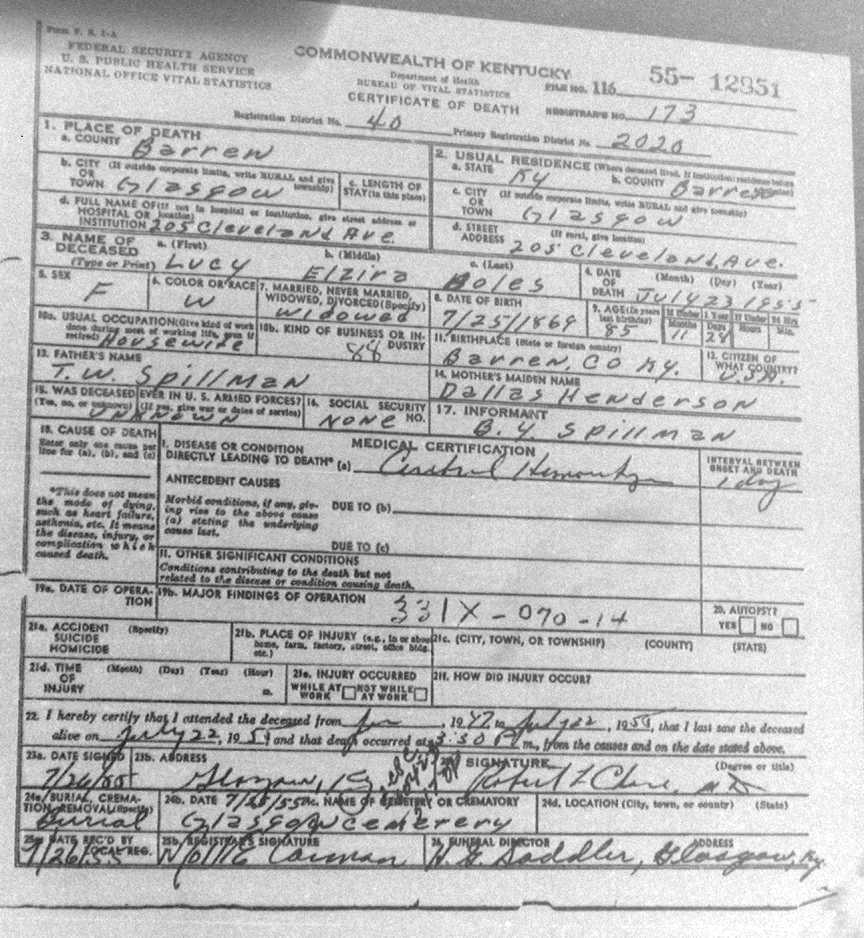 Form V. S. 1-A
FEDERAL SECURITY AGENCY
U. S. PUBLIC HEALTH SERVICE
NATIONAL OFFICE VITAL STATISTICS
COMMONWEALTH OF KENTUCKY
Department of Health
BUREAU OF VITAL STATISTICS
CERTIFICATE OF DEATH
FILE NO. 116 55- 12951
REGISTRAR'S NO. 173
Registration District No. 40 Primary Registration District No. 2020
1. PLACE OF DEATH
a. COUNTY Barren
b. CITY (If outside corporate limits, write RURAL and give township)
OR
TOWN Glasgow
c. LENGTH OF STAY (in this place)
d. FULL NAME OF (If not in hospital or institution, give street address or location)
HOSPITAL OR
INSTITUTION 205 Cleveland Ave.
2. USUAL RESIDENCE (Where deceased lived. If institution: residence before
a. STATE Ky b. COUNTY Barren
c. CITY (If outside corporate limits, write RURAL and give township)
OR
TOWN Glasgow
d. STREET (If rural, give location)
ADDRESS 205 Cleveland, Ave.
3. NAME OF DECEASED (Type or Print)
a. (First) Lucy b. (Middle) Elzira c. (Last) Boles
4. DATE OF DEATH (Month) (Day) (Year)
July 23 1955
5. SEX F
6. COLOR OR RACE W
7. MARRIED, NEVER MARRIED, WIDOWED, DIVORCED (Specify) Widowed
8. DATE OF BIRTH 7/25/1869
9. AGE (In years last birthday) 85
If Under 1 Year Months 11 Days 28
If Under 24 Hrs Hours Min.
10a. USUAL OCCUPATION (Give kind of work done during most of working life, even if retired) Housewife
10b. KIND OF BUSINESS OR INDUSTRY 88
11. BIRTHPLACE (State or foreign country) Barren, CO Ky.
12. CITIZEN OF WHAT COUNTRY? U.S.A.
13. FATHER'S NAME
T. W. Spillman
14. MOTHER'S MAIDEN NAME
Dallas Henderson
15. WAS DECEASED EVER IN U. S. ARMED FORCES?
(Yes, no, or unknown) (If yes, give war or dates of service)
Unknown
16. SOCIAL SECURITY NO. None
17. INFORMANT
B. Y. Spillman
18. CAUSE OF DEATH
Enter only one cause per line for (a), (b), and (c)
*This does not mean the mode of dying, such as heart failure, asthenia, etc. It means the disease, injury, or complication which caused death.
MEDICAL CERTIFICATION
I. DISEASE OR CONDITION
DIRECTLY LEADING TO DEATH* (a) Cerebral Hemorrhage
INTERVAL BETWEEN ONSET AND DEATH
1 day
ANTECEDENT CAUSES
Morbid conditions, if any, giving rise to the above cause (a) stating the underlying cause last.
DUE TO (b)
DUE TO (c)
II. OTHER SIGNIFICANT CONDITIONS
Conditions contributing to the death but not
related to the disease or condition causing death.
19a. DATE OF OPERATION
19b. MAJOR FINDINGS OF OPERATION
331X-070-14
20. AUTOPSY?
YES NO
21a. ACCIDENT (Specify)
SUICIDE
HOMICIDE
21b. PLACE OF INJURY (e.g., in or about home, farm, factory, street, office bldg. etc.)
21c. (CITY, TOWN, OR TOWNSHIP) (COUNTY) (STATE)
21d. TIME OF INJURY (Month) (Day) (Year) (Hour) m.
21e. INJURY OCCURRED
WHILE AT WORK NOT WHILE AT WORK
21f. HOW DID INJURY OCCUR?
22. I hereby certify that I attended the deceased from Jan, 1947 to July 22, 1955, that I last saw the deceased
alive on July 22, 1955 and that death occurred at 3:30 P m., from the causes and on the date stated above.
23a. DATE SIGNED 7/26/55
23b. ADDRESS Glasgow, Ky
SIGNATURE (Degree or title)
Robert L MD
24a. BURIAL, CREMATION, REMOVAL (Specify) Burial
24b. DATE 7/25/55
24c. NAME OF CEMETERY OR CREMATORY
Glasgow Cemetery
24d. LOCATION (City, town, or county) (State)
25a. DATE REC'D BY LOCAL REG. 7/26/55
25b. REGISTRAR'S SIGNATURE
26. FUNERAL DIRECTOR ADDRESS
Saddler, Glasgow, Ky